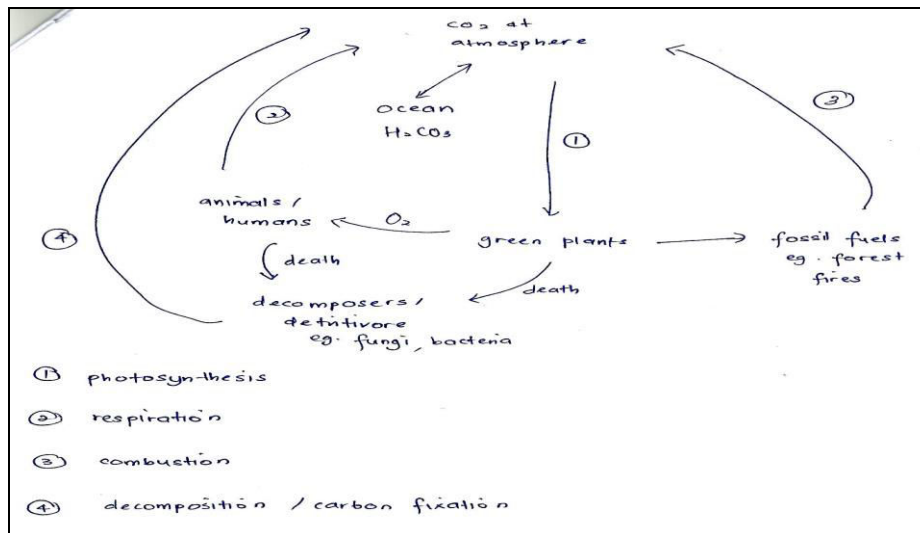 CO₂ at
atmosphere
②
③
ocean
H₂CO₃
①
animals /
humans
O₂
④
green plants
fossil fuels
eg. forest
fires
death
death
decomposers /
detritivore
eg. fungi, bacteria
① photosynthesis
② respiration
③ combustion
④ decomposition / carbon fixation